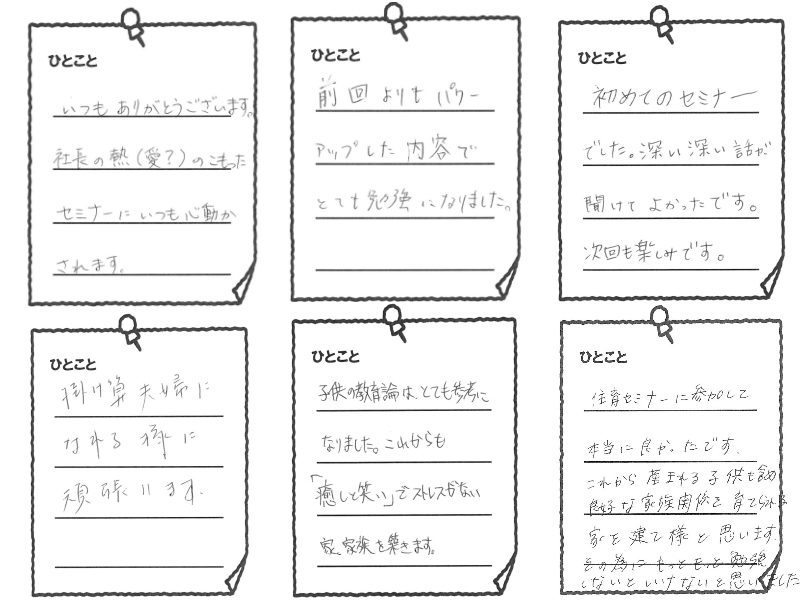 ひとこと
いつもありがとうございます。
社長の熱(愛?)のこもった
セミナーにいつも心動か
されます。
ひとこと
前回よりもパワー
アップした内容で
とても勉強になりました。
ひとこと
初めてのセミナー
でした。深い深い話が
聞けてよかったです。
次回も楽しみです。
ひとこと
掛け算夫婦に
なれる様に
頑張ります。
ひとこと
子供の教育論は、とても参考に
なりました。これからも
「癒しと笑い」でストレスがない
家、家族を築きます。
ひとこと
住育セミナーに参加して
本当に良かったです。
これから産まれる子供も含め
良好な家族関係を育てられる
家を建て様と思います
その為にもっともっと勉強
しないといけないと思いました